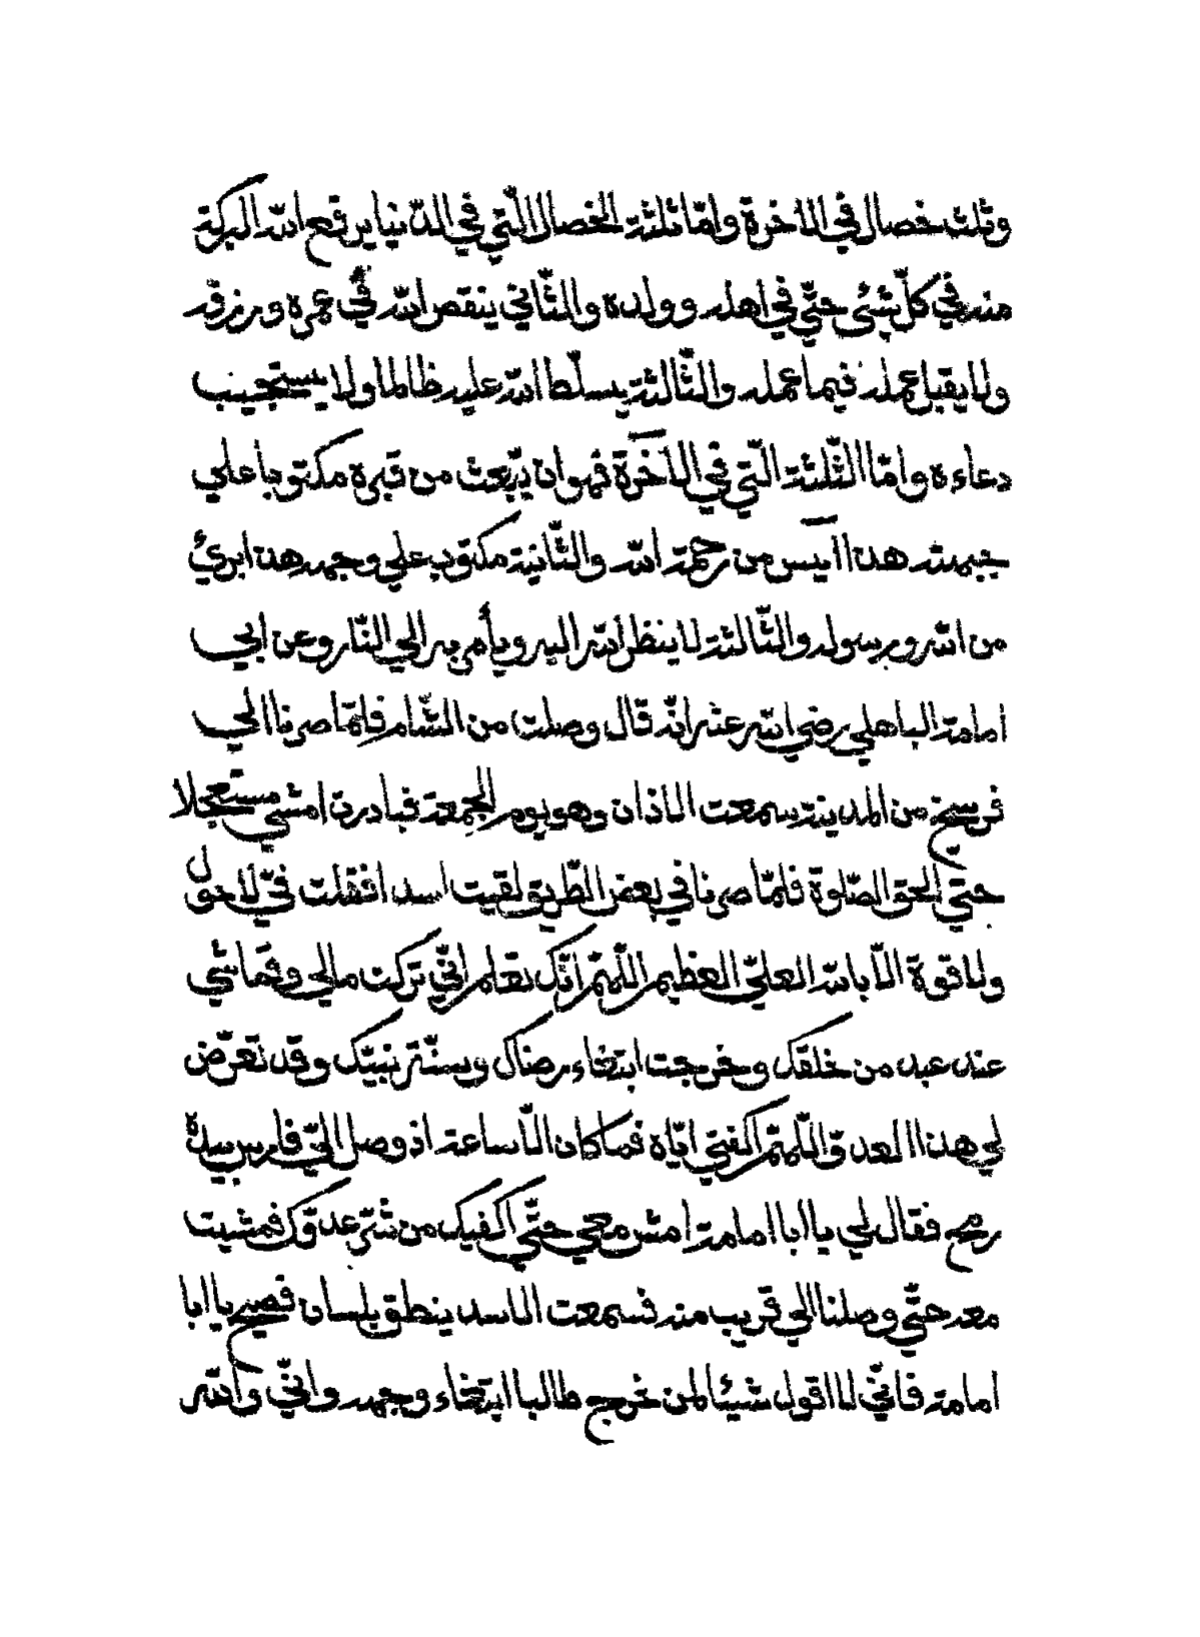 وثلث خصال في الاخرة وامّا ثلثة الخصال الّتي في الدّنيا يرفع الله البركة
منه في كلّ شئ حتّي في اهله وولده والثّاني ينقص الله في عمره ورزقه
ولا يقبل عمله فيما عمله والثّالثة يسلّط الله عليه ظالما ولا يستجيب
دعاءه وامّا الثّلثة الّتي في الآخرة فهو ان يبعث من قبره مكتوبا علي
جبهته هذا آيس من رحمة الله والثّانية مكتوب علي وجهه هذا برئ
من الله ورسوله والثّالثة لا ينظر الله اليه ويأمر به الي النّار وعن ابي
امامة الباهلي رضي الله عنه انّه قال وصلت من الشّام فلمّا صرنا الي
فرسخ من المدينة سمعت الاذان وهو يوم الجمعة فبادرت امشي مستعجلا
حتّي الحق الصّلوة فلمّا صرنا في بعض الطّريق لقيت اسدا فقلت في لا حول
ولا قوة الّا بالله العليّ العظيم اللّهمّ انّك تعلم انّي تركت مالي وقماشي
عند عبد من خلقك وخرجت ابتغاء رضاك وسنّة نبيّك وقد تعرّض
لي هذا العدوّ اللّهمّ اكفني ايّاه فما كان الّا ساعة اذ وصل اليّ فارس بيده
رمح فقال لي يا ابا امامة امش معي حتّي اكفيك من شرّ عدوّك فمشيت
معه حتّي وصلنا الي قريب منه فسمعت الاسد ينطق بلسان فصيح يا ابا
امامة فانّي لا اقول شيئا لمن خرج طالبا ابتغاء وجهه وانّي والله